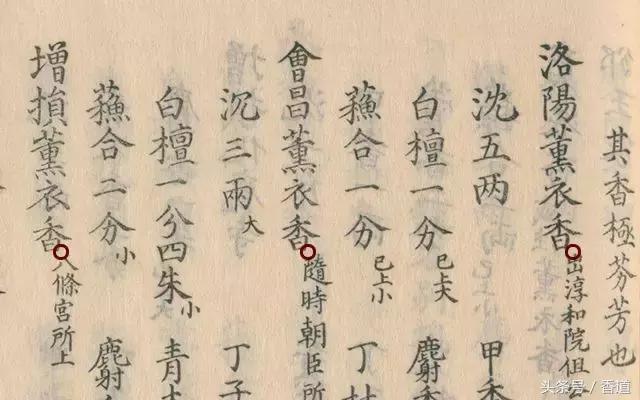 其香極芬芳也
洛陽薰衣香 出淳和院
沈五两 甲
白檀一分 已上大 麝
蘓合一分 已上小 丁
會昌薰衣香 隨時朝臣所
沉三兩 大 丁子
白檀一分四朱 小 青
蘓合二分 小 麝
増損薰衣香 八條宮所上
头条号 / 香道